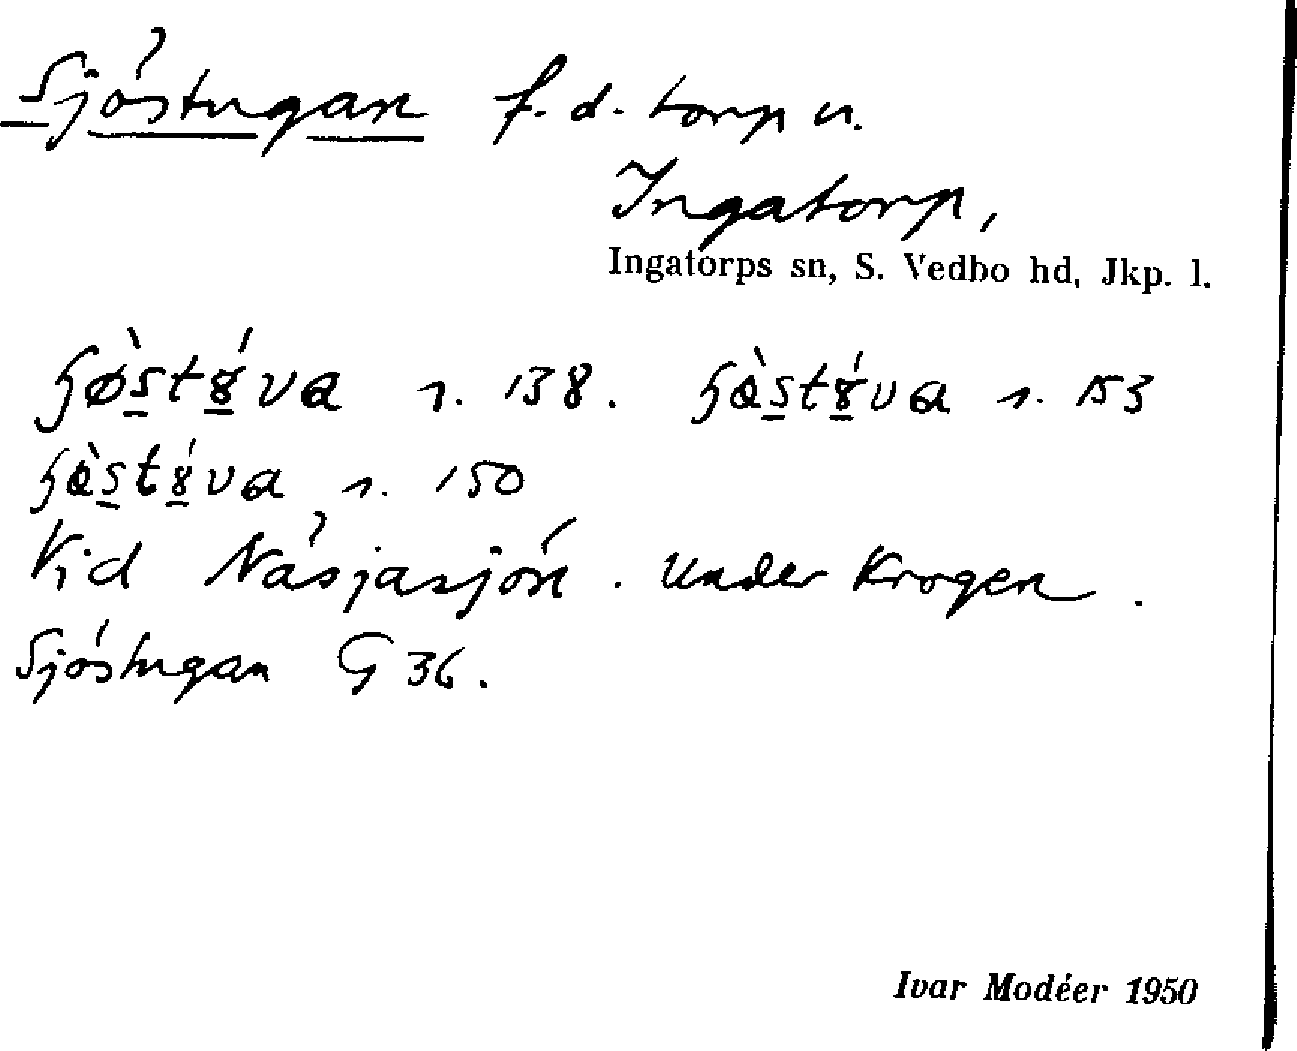 Sjöstugan f.d. torp u.
Ingatorp,
Ingatorps sn, S. Vedbo hd, Jkp. l.
s. 138. s. 153
s. 150
Vid Näsjasjön. Under Krogen.
Sjöstugan G 36.
Ivar Modéer 1950